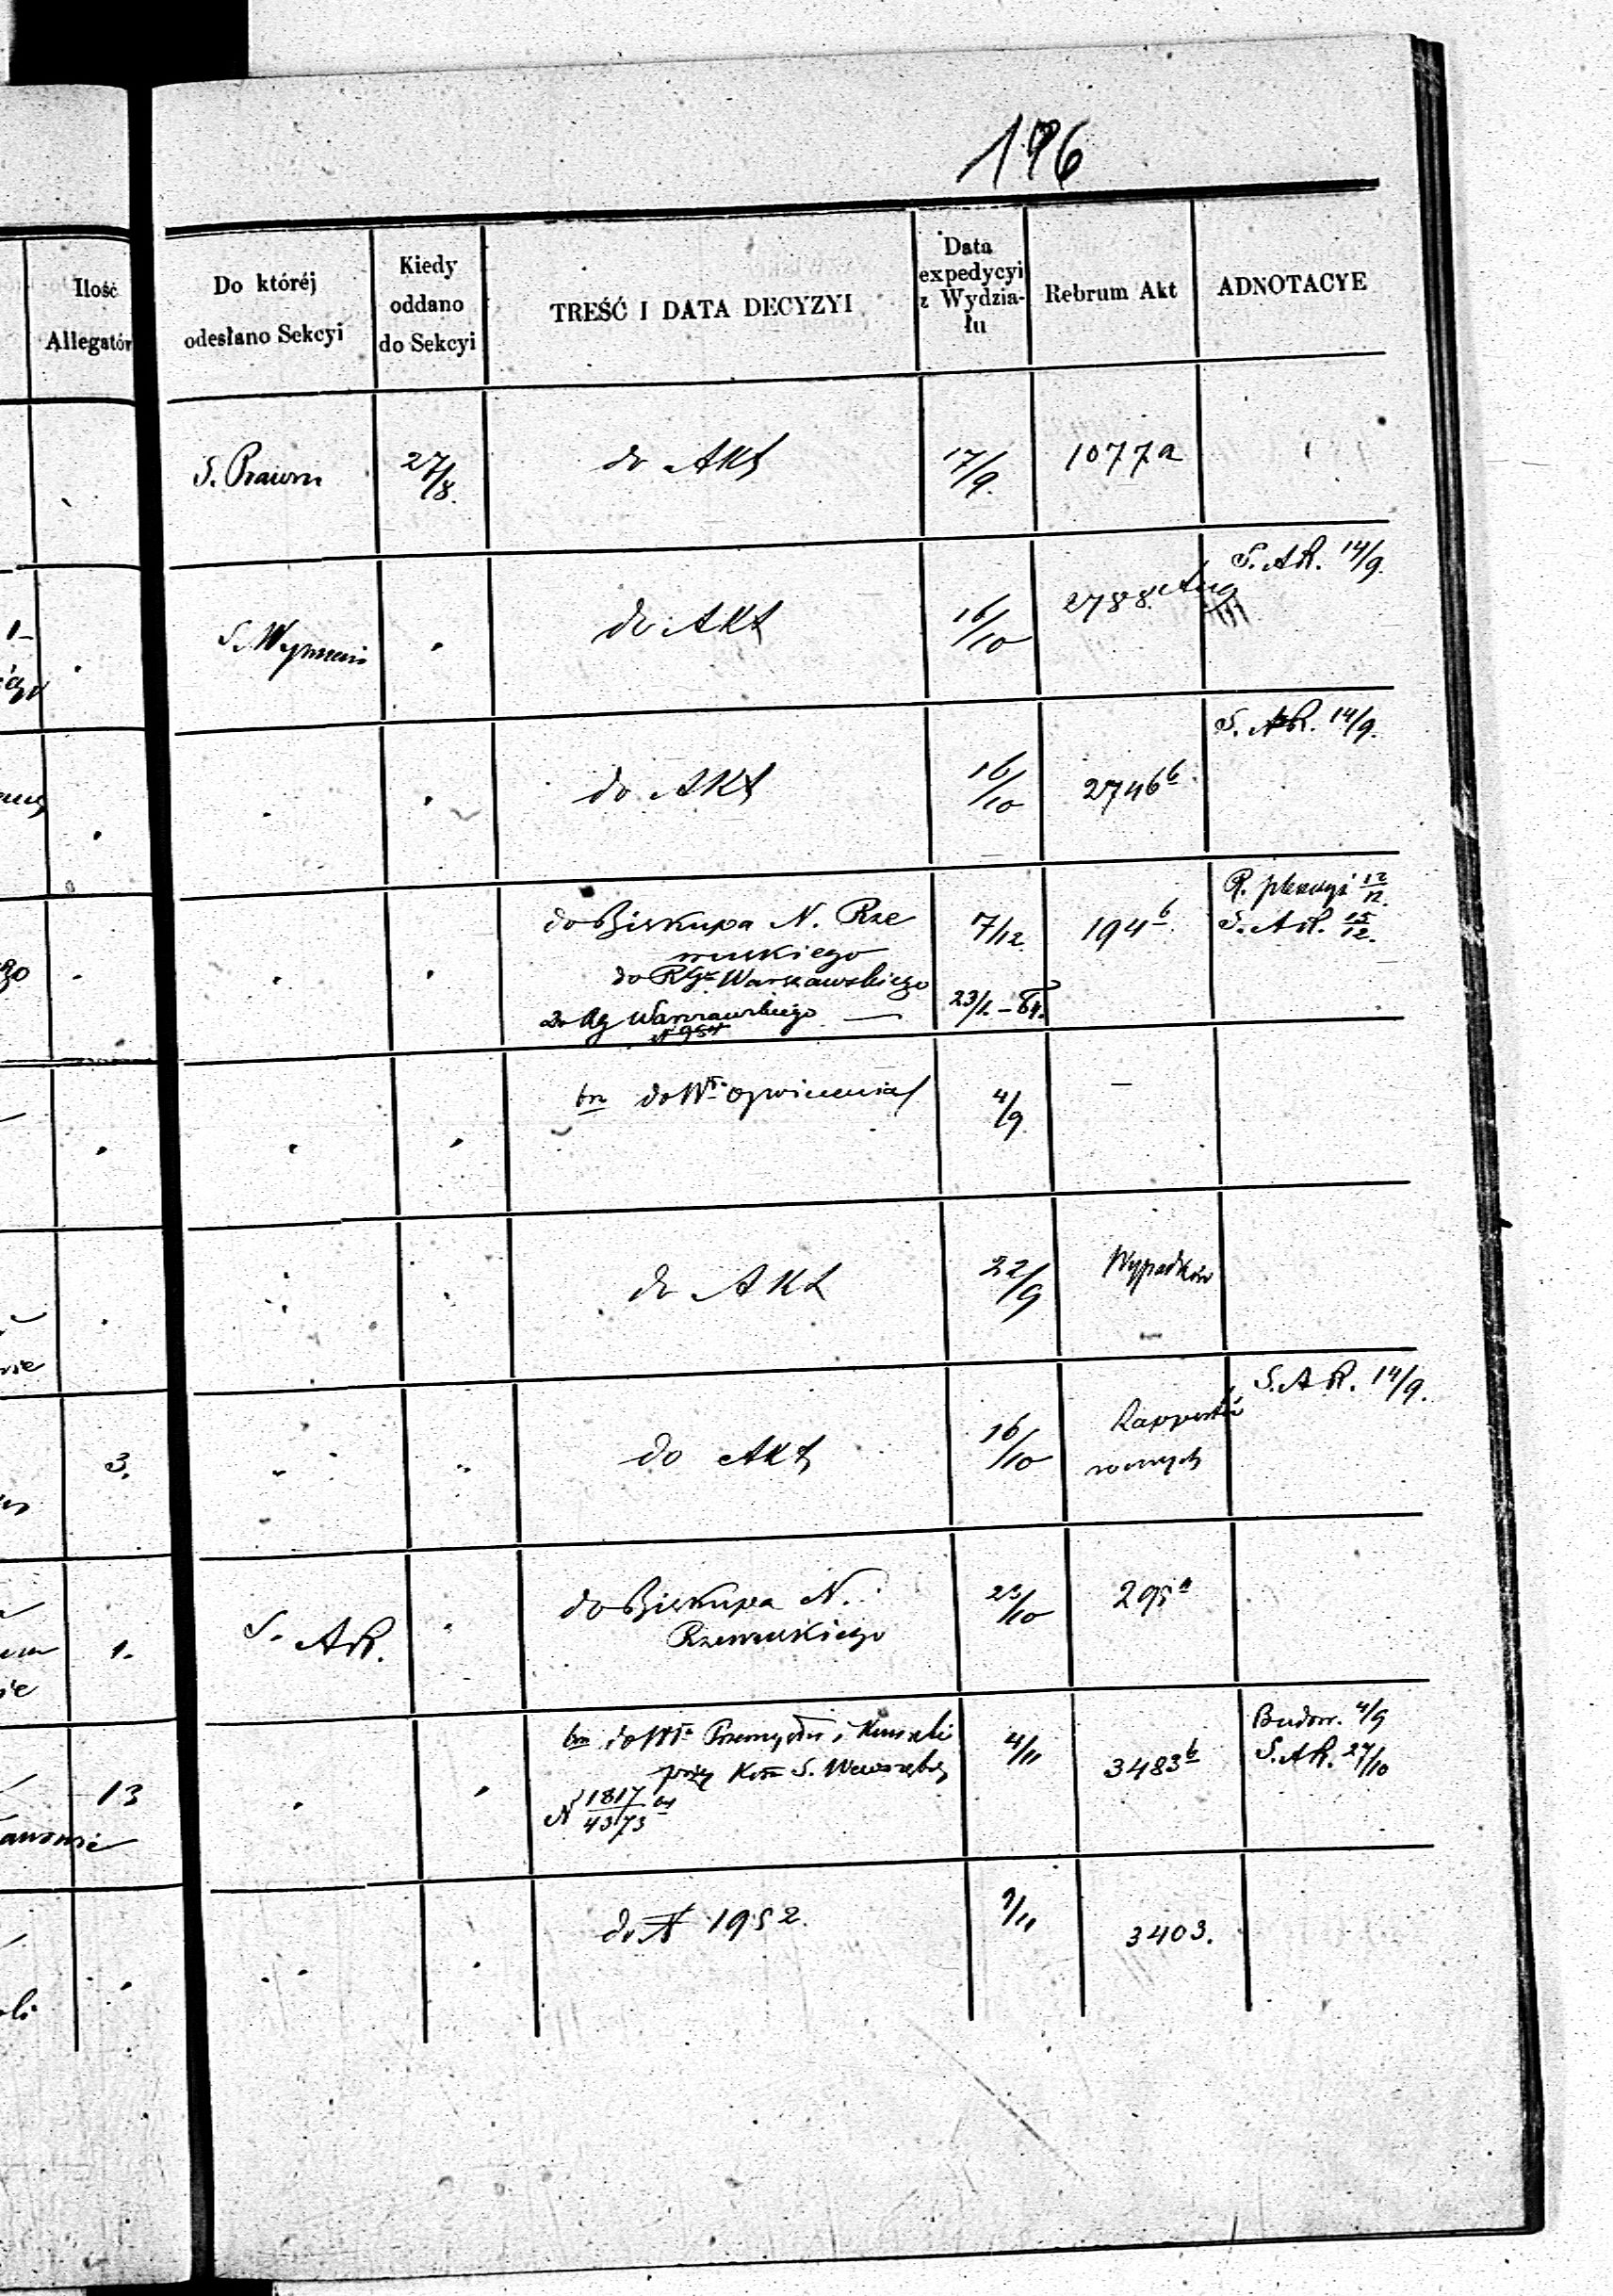 196
Ilość
Allegatów
Do któréj
odesłano Sekcyi
Kiedy
oddano
do Sekcyi
TREŚĆ I DATA DECYZYI
Data
expedycyi
z Wydzia-
łu
Rebrum Akt
ADNOTACYE
S. Prawn
27/8.
do Akt
17/9.
1077a
S. Wyznań
do Akt
16/10
2788.
S. AR. 14/9.
do Akt
16/10
2746b
S. AR. 14/9.
do Biskupa N. Rze
wuskiego
do RGu Warszawskiego
do Rg Warszawskiego
7/12.
194b.
12/12.
S. AR. 15/12.
bn do Wu Oświecenia
4/9
–
do Akt
22/9
Wypadków
3.
do Akt
16/10
Rapportów
rocznych
S. AR. 14/9.
1.
S. AR.
do Biskupa N.
Rzewuskiego
295a
13
bn do Wu Przemysłu i Kunszt
przy Kom S. Wewnętrz
N 1817/4373
4/11
3483b
Budow. 4/9
S. AR. 27/10
do N 1952.
9/11
3403.